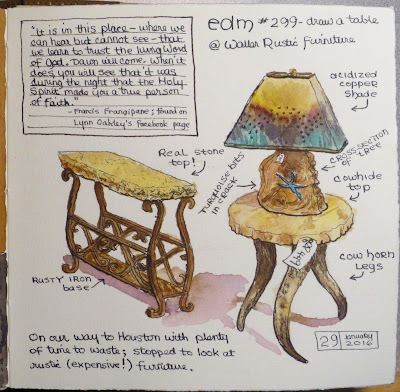 "It is in this place - where we
can hear but cannot see - that
we learn to trust the living Word
of God. Dawn will come. When it
does, you will see that it was
during the night that the Holy
Spirit made you a true person
of faith."
- Francis Frangipane; found on
Lynn Oakley's Facebook page
edm #299 - draw a table
@ Walls Rustic Furniture
acidized
copper
shade
Real stone
top!
TURQUOISE BITS
in CRACK
CROSS-SECTION
OF TREE
COWHIDE
TOP
COW HORN
LEGS
RUSTY IRON
base
29 January
2016
On our way to Houston with plenty
of time to waste; stopped to look at
rustic (expensive!) furniture.